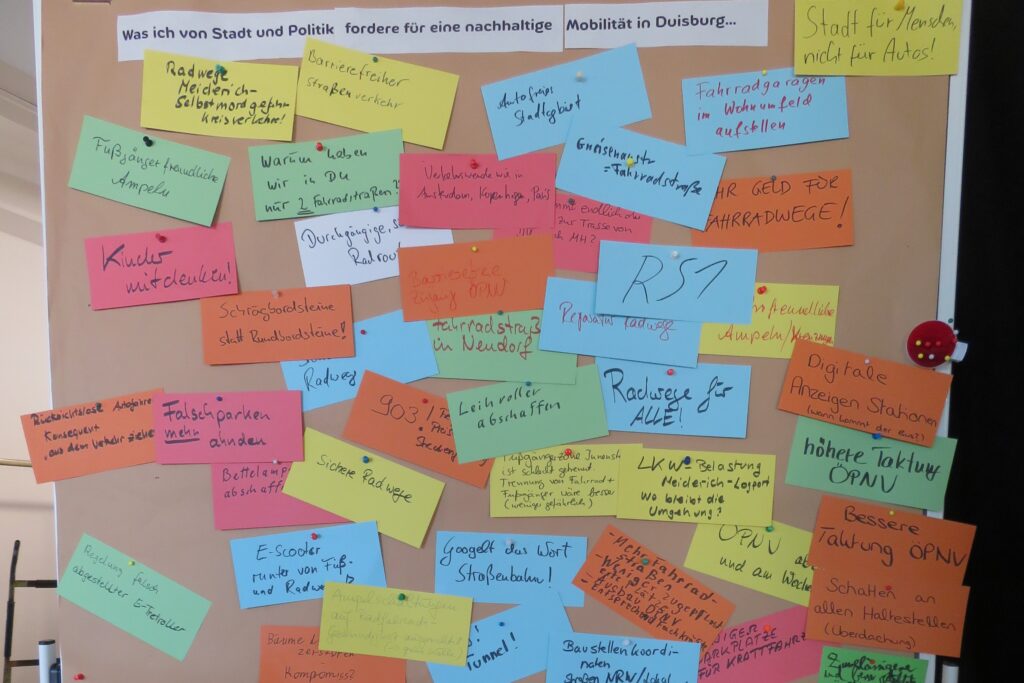 Was ich von Stadt und Politik fordere für eine nachhaltige Mobilität in Duisburg...
Stadt für Menschen,
nicht für Autos!
Radwege
Meiderich-
Selbstmordgefahr
Kreisverkehre!
Barrierefreier
straßenverkehr
Autofreies
Stadtgebiet
Fahrradgaragen
im Wohnumfeld
aufstellen
Fußgänger freundliche
Ampeln
Warum haben
wir in DU
nur 2 Fahrradstraßen?
Verkehrswende wie in
Amsterdam, Kopenhagen, Paris
Gneisenaustr
= Fahrradstraße
endlich
zur Trasse von
MH?
GELD FÜR
FAHRRADWEGE!
Kinder
mitdenken!
Durchgängige,
Barrierefreier
Zugang ÖPNV
RS1
Schrägbordsteine
statt Rundbordsteine!
Radweg
Fahrradstraß
in Neudorf
Reparatur Radwege
freundliche
Ampeln
Digitale
Anzeigen Stationen
(wann kommt der Bus?)
Rücksichtslose Autofahrer
Konsequent
aus dem Verkehr ziehen
Falschparken
mehr
ahnden
903
Leihroller
abschaffen
Radwege für
ALLE!
höhere Taktung
ÖPNV
Bettelampeln
Sichere Radwege
Fußgängerzone
ist schlecht gehend.
Trennung von Fahrrad +
Fußgänger wäre besser
(weniger gefährlich)
LKW-Belastung
Meiderich-Logport
Wo bleibt die
Umgehung?
Bessere
Taktung ÖPNV
Regelung falsch
abgestellter E-Tretroller
E-Scooter
runter von Fuß-
und Radwe
Googelt das Wort
Straßenbahn!
- Mehr Fahrrad-
straßen
- Weniger zugeparkt
- Ausbau ÖPNV
entsprechend
ÖPNV
und am Woche
Schatten an
allen Haltestellen
(Überdachung)
Ampelschaltungen
auf Radfahrer
Bäume
Kompromiss?
Tunnel!
Baustellenkoordi-
naten
Straßen NRW/lokal
PARKPLÄTZE
FÜR KRAFTFAHRZ